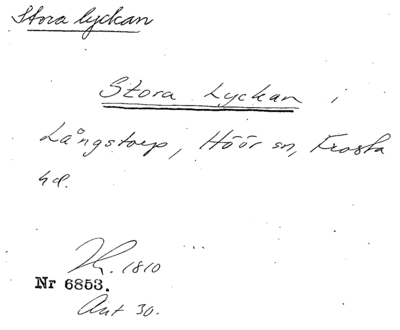 Stora lyckan
Stora Lyckan i
Långstorp, Höör sn, Frosta
hd.
1810
Nr 6853.
Akt 30.